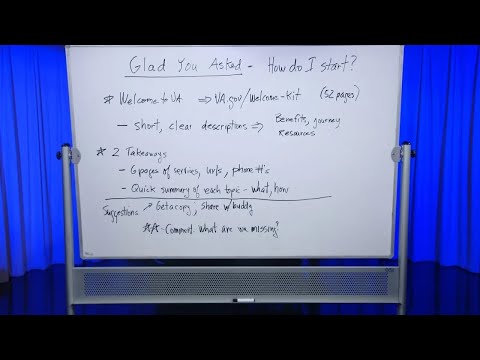 Glad You Asked - How do I start?
* Welcome to VA ⇒ VA.gov/Welcome-Kit (52 pages)
- short, clear descriptions ⇒ Benefits, journey
Resources
* 2 Takeaways
- 6 pages of services, urls, phone #'s
- Quick summary of each topic - what, how
Suggestions → Get a copy, share w/ buddy
** Comment. What are we missing?